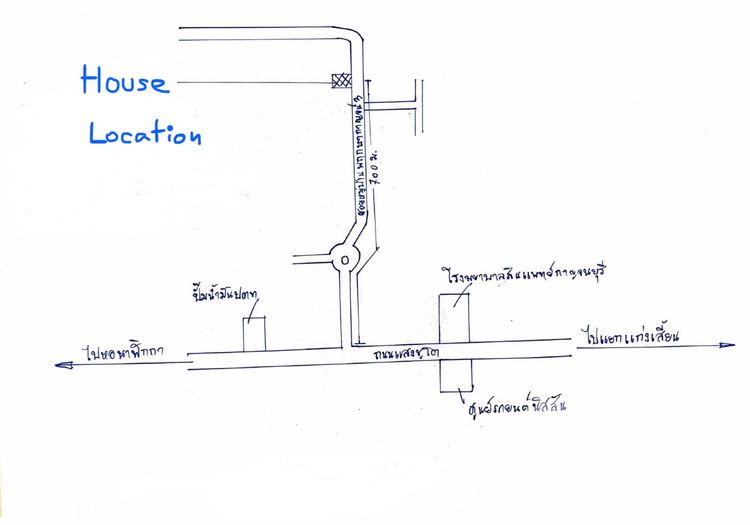 House
Location
700 ม.
โรงพยาบาลสมเเพทย์กาญจนบุรี
ปั๊มน้ำมันปตท
ไปหอนาฬิกกา
ถนนแสงชูโต
ไปแยกแก่งเสี้ยน
ศูนย์รถยนต์นิสสัน